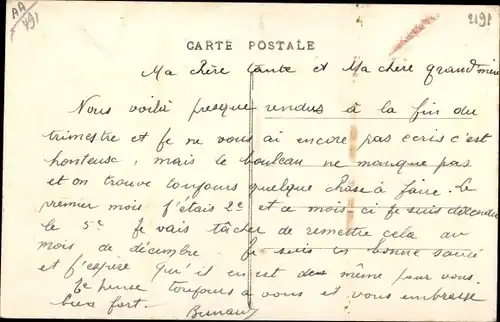 AA
491
2191
CARTE POSTALE
Ma chère tante et Ma chère grand'mère
Nous voilà presque rendus à la fin du
trimestre et je ne vous ai encore pas écris c'est
honteuse, mais le bouleau ne manque pas
et on trouve toujours quelque chose à faire. Le
premier mois j'étais 2e et ce mois-ci je suis descendue
la 5e Je vais tâcher de remettre cela au
mois de décembre. Je suis en bonne santé
et j'espère qu'il en est de même pour vous.
Je pense toujours à vous et vous embrasse
bien fort.